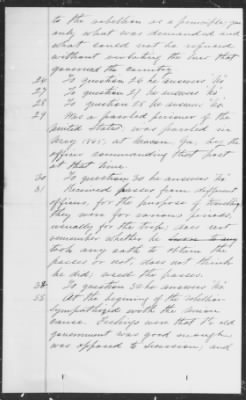 to the rebellion as a principle, gave
only what was demanded and
what could not be refused
without violating the laws that
governed the country
26 To question 26 he answers "No"
27 To question 27 he answers "No"
28 To question 28 he answers "No"
29 Was a paroled prisoner of the
United States, was paroled in
May 1865, at Macon, Ga, by the
officer commanding that post
at that time.
30 To question 30 he answers "No"
31 Received passes from different
officers, for the purpose of traveling
they were for various periods,
usually for the trip, does not
remember whether he
took any oath to obtain the
passes or not, does not think
he did; used the passes.
32 To question 32 he answers "No"
33 At the beginning of the rebellion
sympathized with the Union
cause. Feelings were that the old
government was good enough
was opposed to secession; and